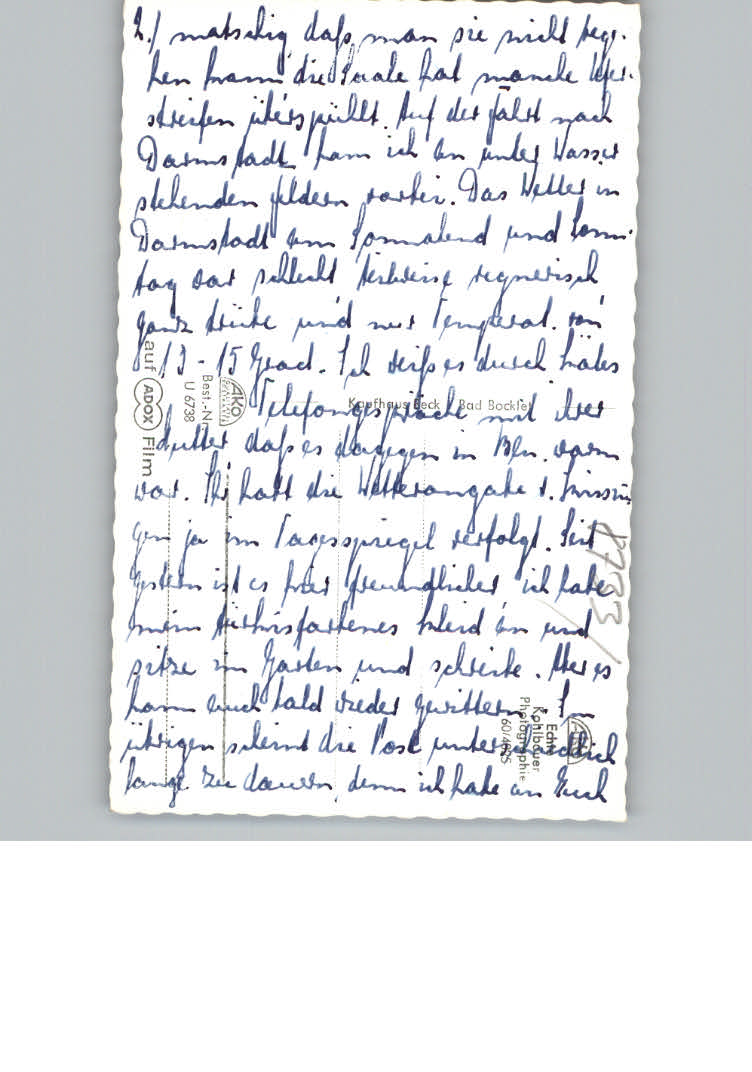 2./ matschig daß man sie nicht bege-
hen kann die Saale hat manche Ufer-
streifen überspühlt. Auf der Fahrt nach
Darmstadt kam ich an unter Wasser
stehenden Feldern vorbei. Das Wetter in
Darmstadt am Sonnabend und Sonn-
tag war schlecht teilweise regnerisch
ganz trübe und nur Temperat. von
13 - 15 Grad. Ich weiß es durch
Telefongespräche mit ihrer
Mutter daß es dagegen in Bln. warm
war. Ihr habt die Wetterangabe
gen ja im Tagesspiegel verfolgt. Seit
gestern ist es hier freundlicher ich habe
mein türkisfarbenes Kleid an und
sitze im Garten und schreibe. Aber es
kann auch bald wieder gewittern. Im
übrigen scheint die Post unterschiedlich
lange zu dauern, denn ich habe an Euch
Kaufhaus Beck Bad Bocklet
auf
ADOX
Film
AKO
Best.-Nr.
U 6738
8733/
Echte
Kohlbauer
Photographie
60/4895